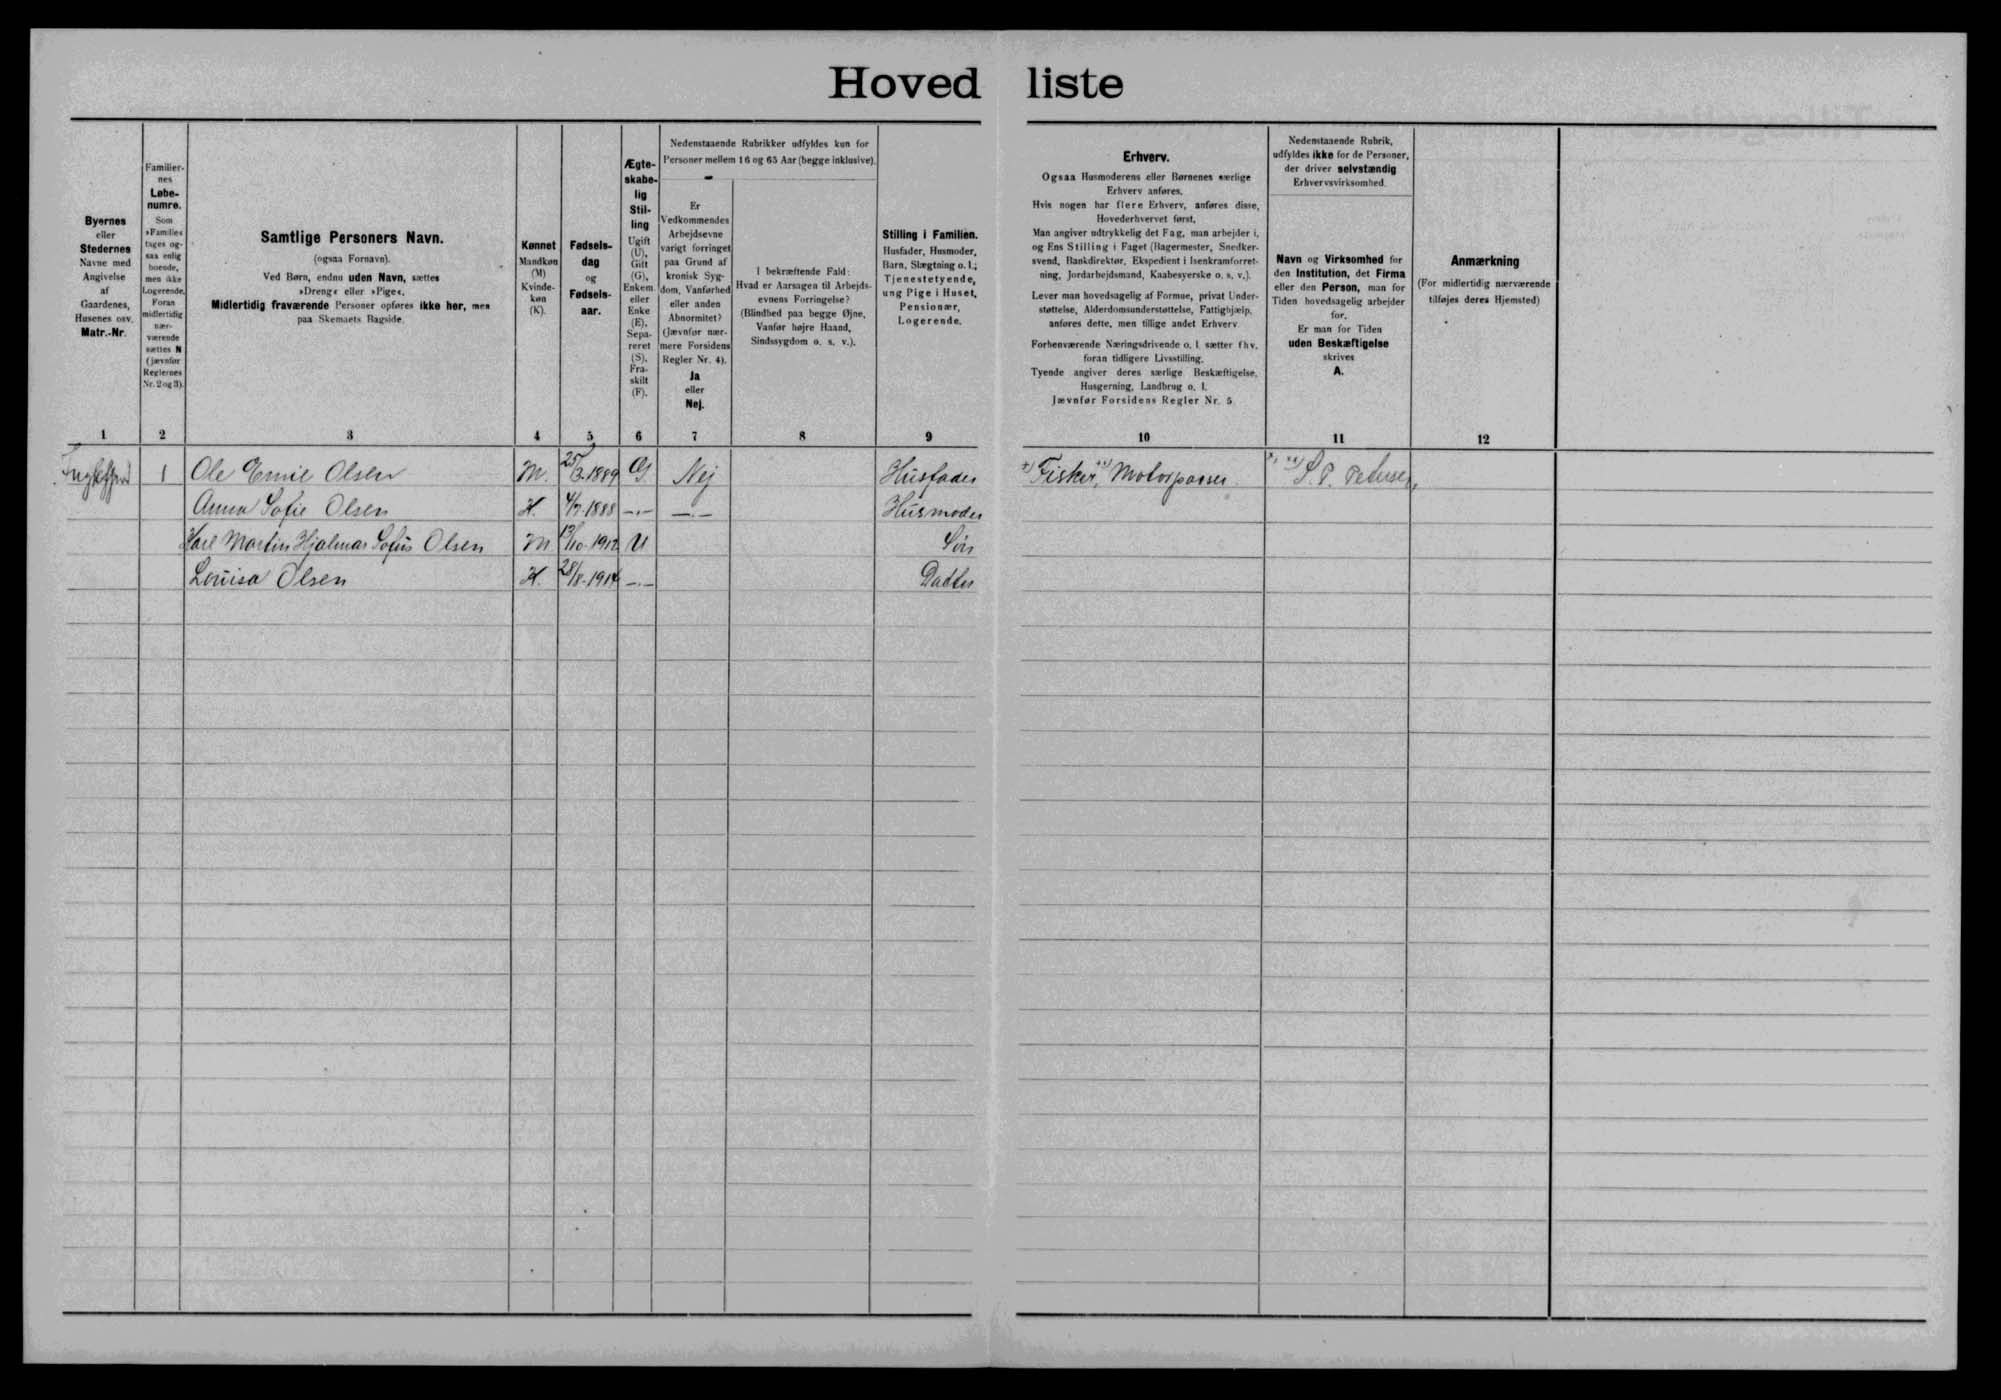 Hovedliste
Byernes
eller
Stedernes
Navne med
Angivelse
af
Gaardenes,
Husenes osv.
Matr.-Nr.
Familier-
nes
Løbe-
numre.
Som
»Familie«
tages og-
saa enlig
boende,
men ikke
Logerende.
Foran
midlertidig
nær-
værende
sættes N
(jævnfør
Reglernes
Nr. 2 og 3).
Samtlige Personers Navn.
(ogsaa Fornavn).
Ved Børn, endnu uden Navn, sættes
»Dreng« eller »Pige«.
Midlertidig fraværende Personer opføres ikke her, men
paa Skemaets Bagside.
Kønnet
Mandkøn
(M)
Kvinde-
køn
(K).
Fødsels-
dag
og
Fødsels-
aar.
Ægte-
skabe-
lig
Stil-
ling
Ugift
(U),
Gift
(G),
Enkem.
eller
Enke
(E),
Sepa-
reret
(S),
Fra-
skilt
(F).
Nedenstaaende Rubrikker udfyldes kun for
Personer mellem 16 og 65 Aar (begge inklusive).
Er
Vedkommendes
Arbejdsevne
varigt forringet
paa Grund af
kronisk Syg-
dom, Vanførhed
eller anden
Abnormitet?
(Jævnfør nær-
mere Forsidens
Regler Nr. 4).
Ja
eller
Nej.
I bekræftende Fald:
Hvad er Aarsagen til Arbejds-
evnens Forringelse?
(Blindhed paa begge Øjne,
Vanfør højre Haand,
Sindssygdom o. s. v.).
Stilling i Familien.
Husfader, Husmoder,
Barn, Slægtning o. l.;
Tjenestetyende,
ung Pige i Huset,
Pensionær,
Logerende.
Erhverv.
Ogsaa Husmoderens eller Børnenes særlige
Erhverv anføres.
Hvis nogen har flere Erhverv, anføres disse,
Hovederhvervet først.
Man angiver udtrykkelig det Fag, man arbejder i,
og Ens Stilling i Faget (Bagermester, Snedker-
svend, Bankdirektør, Ekspedient i Isenkramforret-
ning, Jordarbejdsmand, Kaabesyerske o. s. v.).
Lever man hovedsagelig af Formue, privat Under-
støttelse, Alderdomsunderstøttelse, Fattighjælp,
anføres dette, men tillige andet Erhverv
Forhenværende Næringsdrivende o. l. sætter fhv.
foran tidligere Livsstilling.
Tyende angiver deres særlige Beskæftigelse,
Husgerning, Landbrug o. l.
Jævnfør Forsidens Regler Nr. 5
Nedenstaaende Rubrik,
udfyldes ikke for de Personer,
der driver selvstændig
Erhvervsvirksomhed.
Navn og Virksomhed for
den Institution, det Firma
eller den Person, man for
Tiden hovedsagelig arbejder
for.
Er man for Tiden
uden Beskæftigelse
skrives
A.
Anmærkning
(For midlertidig nærværende
tilføjes deres Hjemsted)
1 2 3 4 5 6 7 8 9 10 11 12
1 Ole Emil Olsen M. 25/3-1889 G Nej Husfader x) Fisker, xx) Motorpasser xx) S. P. Petersen,
Anna Sofie Olsen K. 4/7-1888 —.— —.— Husmoder
Karl Martin Hjalmar Sofus Olsen M 13/10-1912 U Søn
Louisa Olsen K. 28/8-1914 —.— Dadter